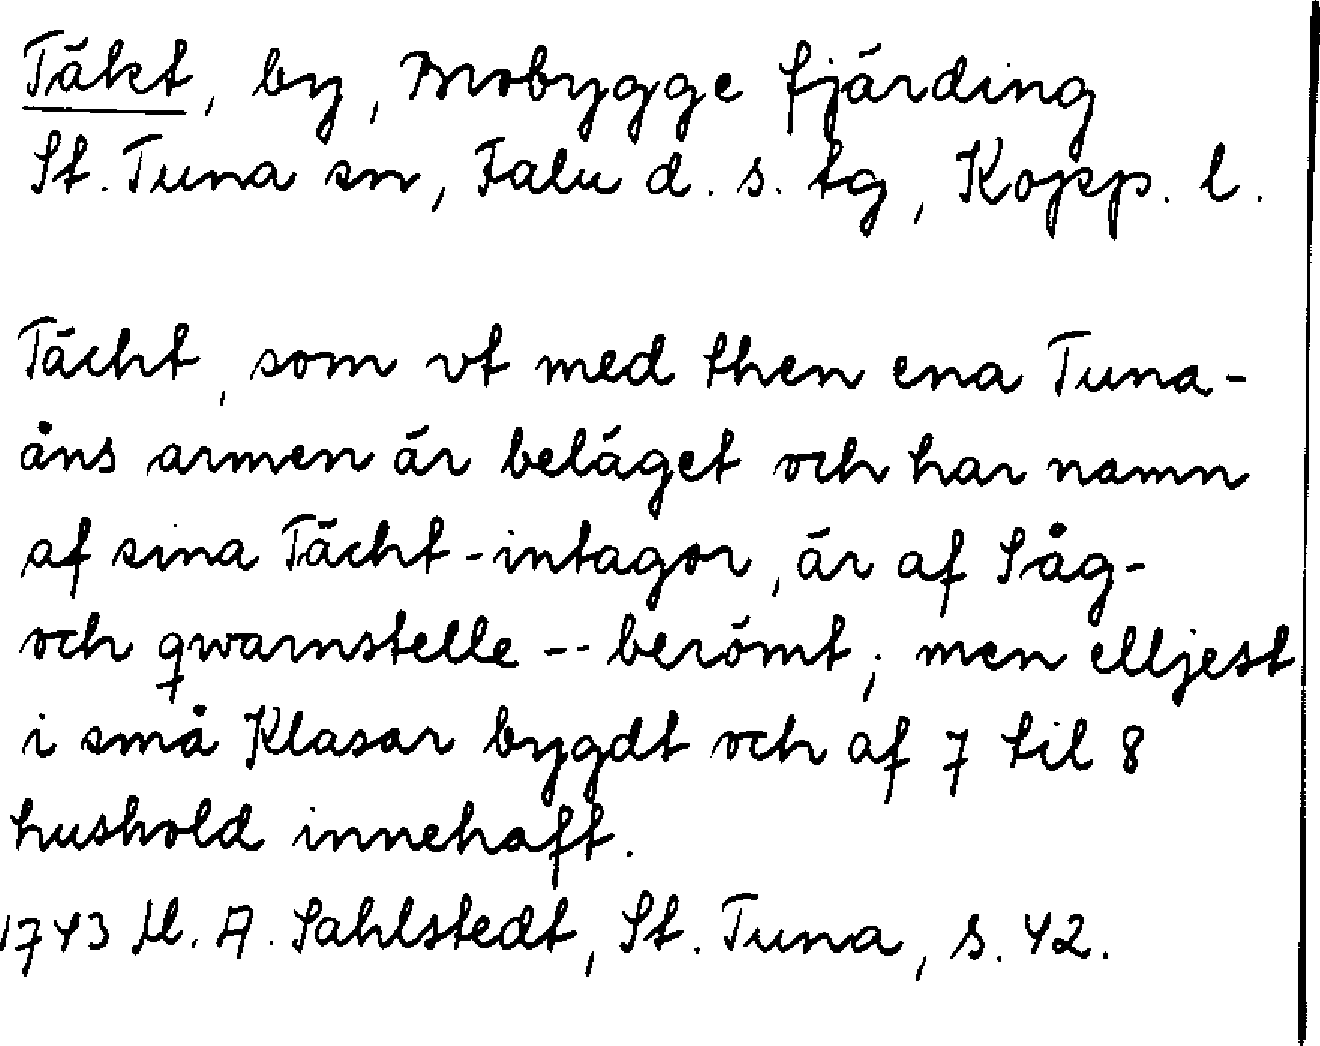 Täkt, by, Mobygge fjärding
St. Tuna sn, Falu d. s. tg, Kopp. l.
Tächt, som vt med then ena Tuna-
åns armen är beläget och har namn
af sina Tächt-intagor, är af Såg-
och qwarnstelle -- berömt; men elljest
i små Klasar bygdt och af 7 til 8
hushold innehaft.
1743 M. A. Sahlstedt, St. Tuna, s. 42.